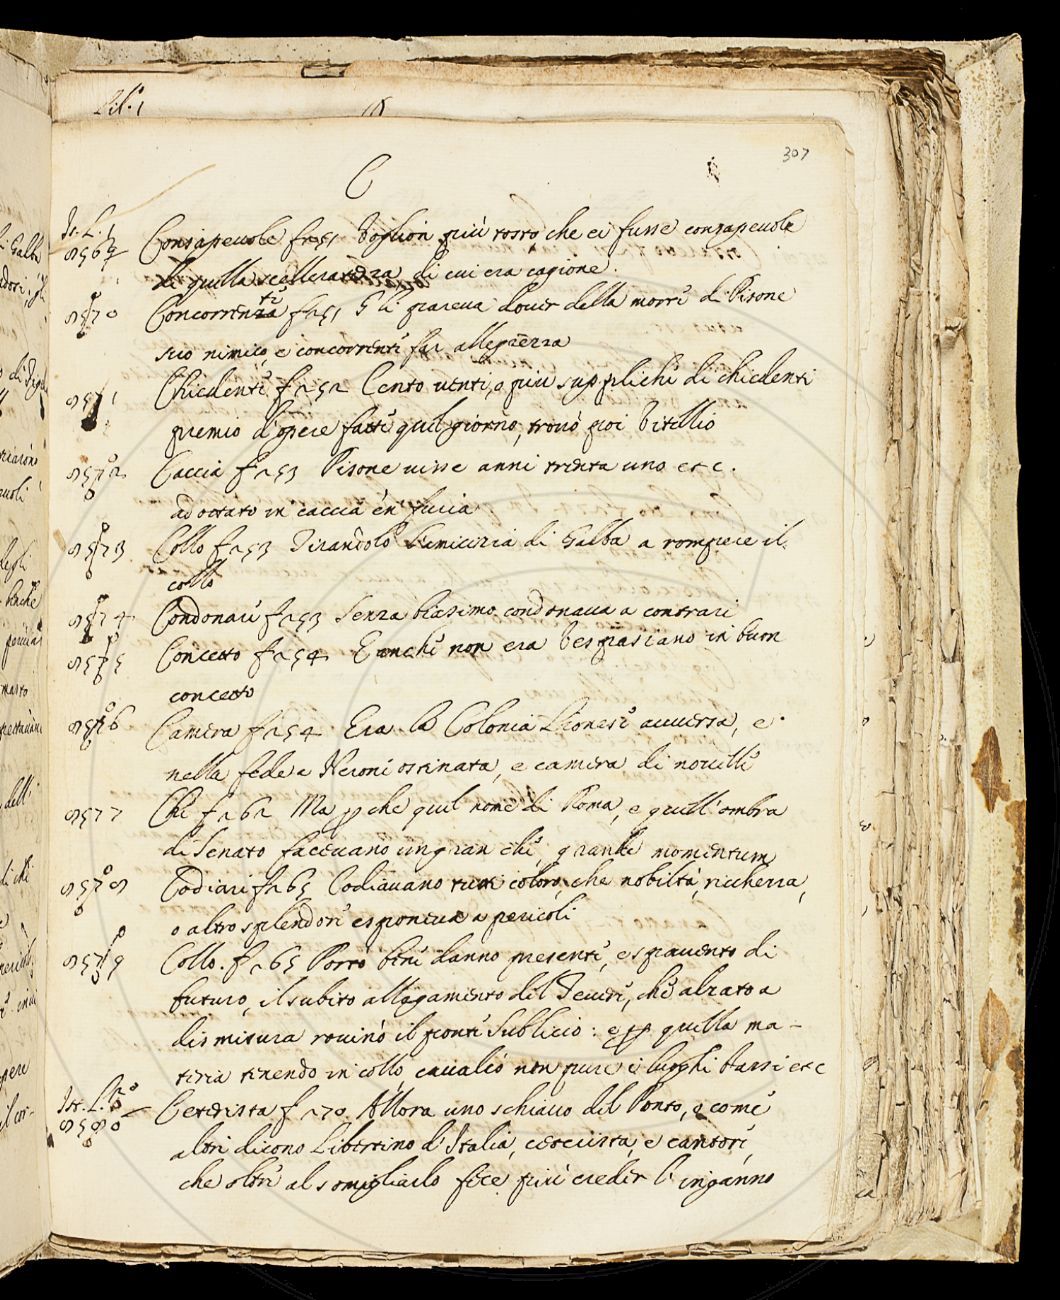 Lib.º 1
307
C
Ist. L. 1
8569 Consapevole f 251 Voglion più tosto che ei fusse consapevole
di quella scelleratezza, di cui era cagione.
8570 Concorrenti f 251 Gli pareva dover della morte di Pisone
suo nimico, e concorrente far allegrezza
8571 Chiedenti f 252 Cento venti, o più suppliche di chiedenti
premio d'opere fatte quel giorno, trovò poi Vitellio
8572 Caccia f 253 Pisone visse anni trenta uno etc.
adottato in caccia e'n furia
8573 Collo f 253 Tirandolo l'amicizia di Galba a rompere il
collo
8574 Condonare f 253 Senza biasimo condonava a contrari
8575 Concetto f 254 E anche non era Vespasiano in buon
concetto
8576 Camera f 254 Era la Colonia Lionese avversa, e
nella fede a Nerone ostinata, e camera di novelle
8577 Che f 262 Ma p che quel nome di Roma, e quell'ombra
di Senato facevano un gran che, grande momentum
8578 Codiare f 265 Codiavano tutti coloro, che nobiltà, ricchezza,
o altro splendore esponeva a pericoli
8579 Collo. f 265 Portò bene danno presente, e spavento di
futuro, il subito allagamento del Tevere, che alzato a
dismisura rovinò il ponte Sublicio: e p quella ma-
teria tenendo in collo cavalcò non pure i luoghi bassi etc
Ist. L. 2
8580 Ceterista f 270. Allora uno schiavo del Ponto, o come
altri dicono Libertino d'Italia, ceterista, e cantore,
che oltre al somigliarlo fece più creder l'inganno